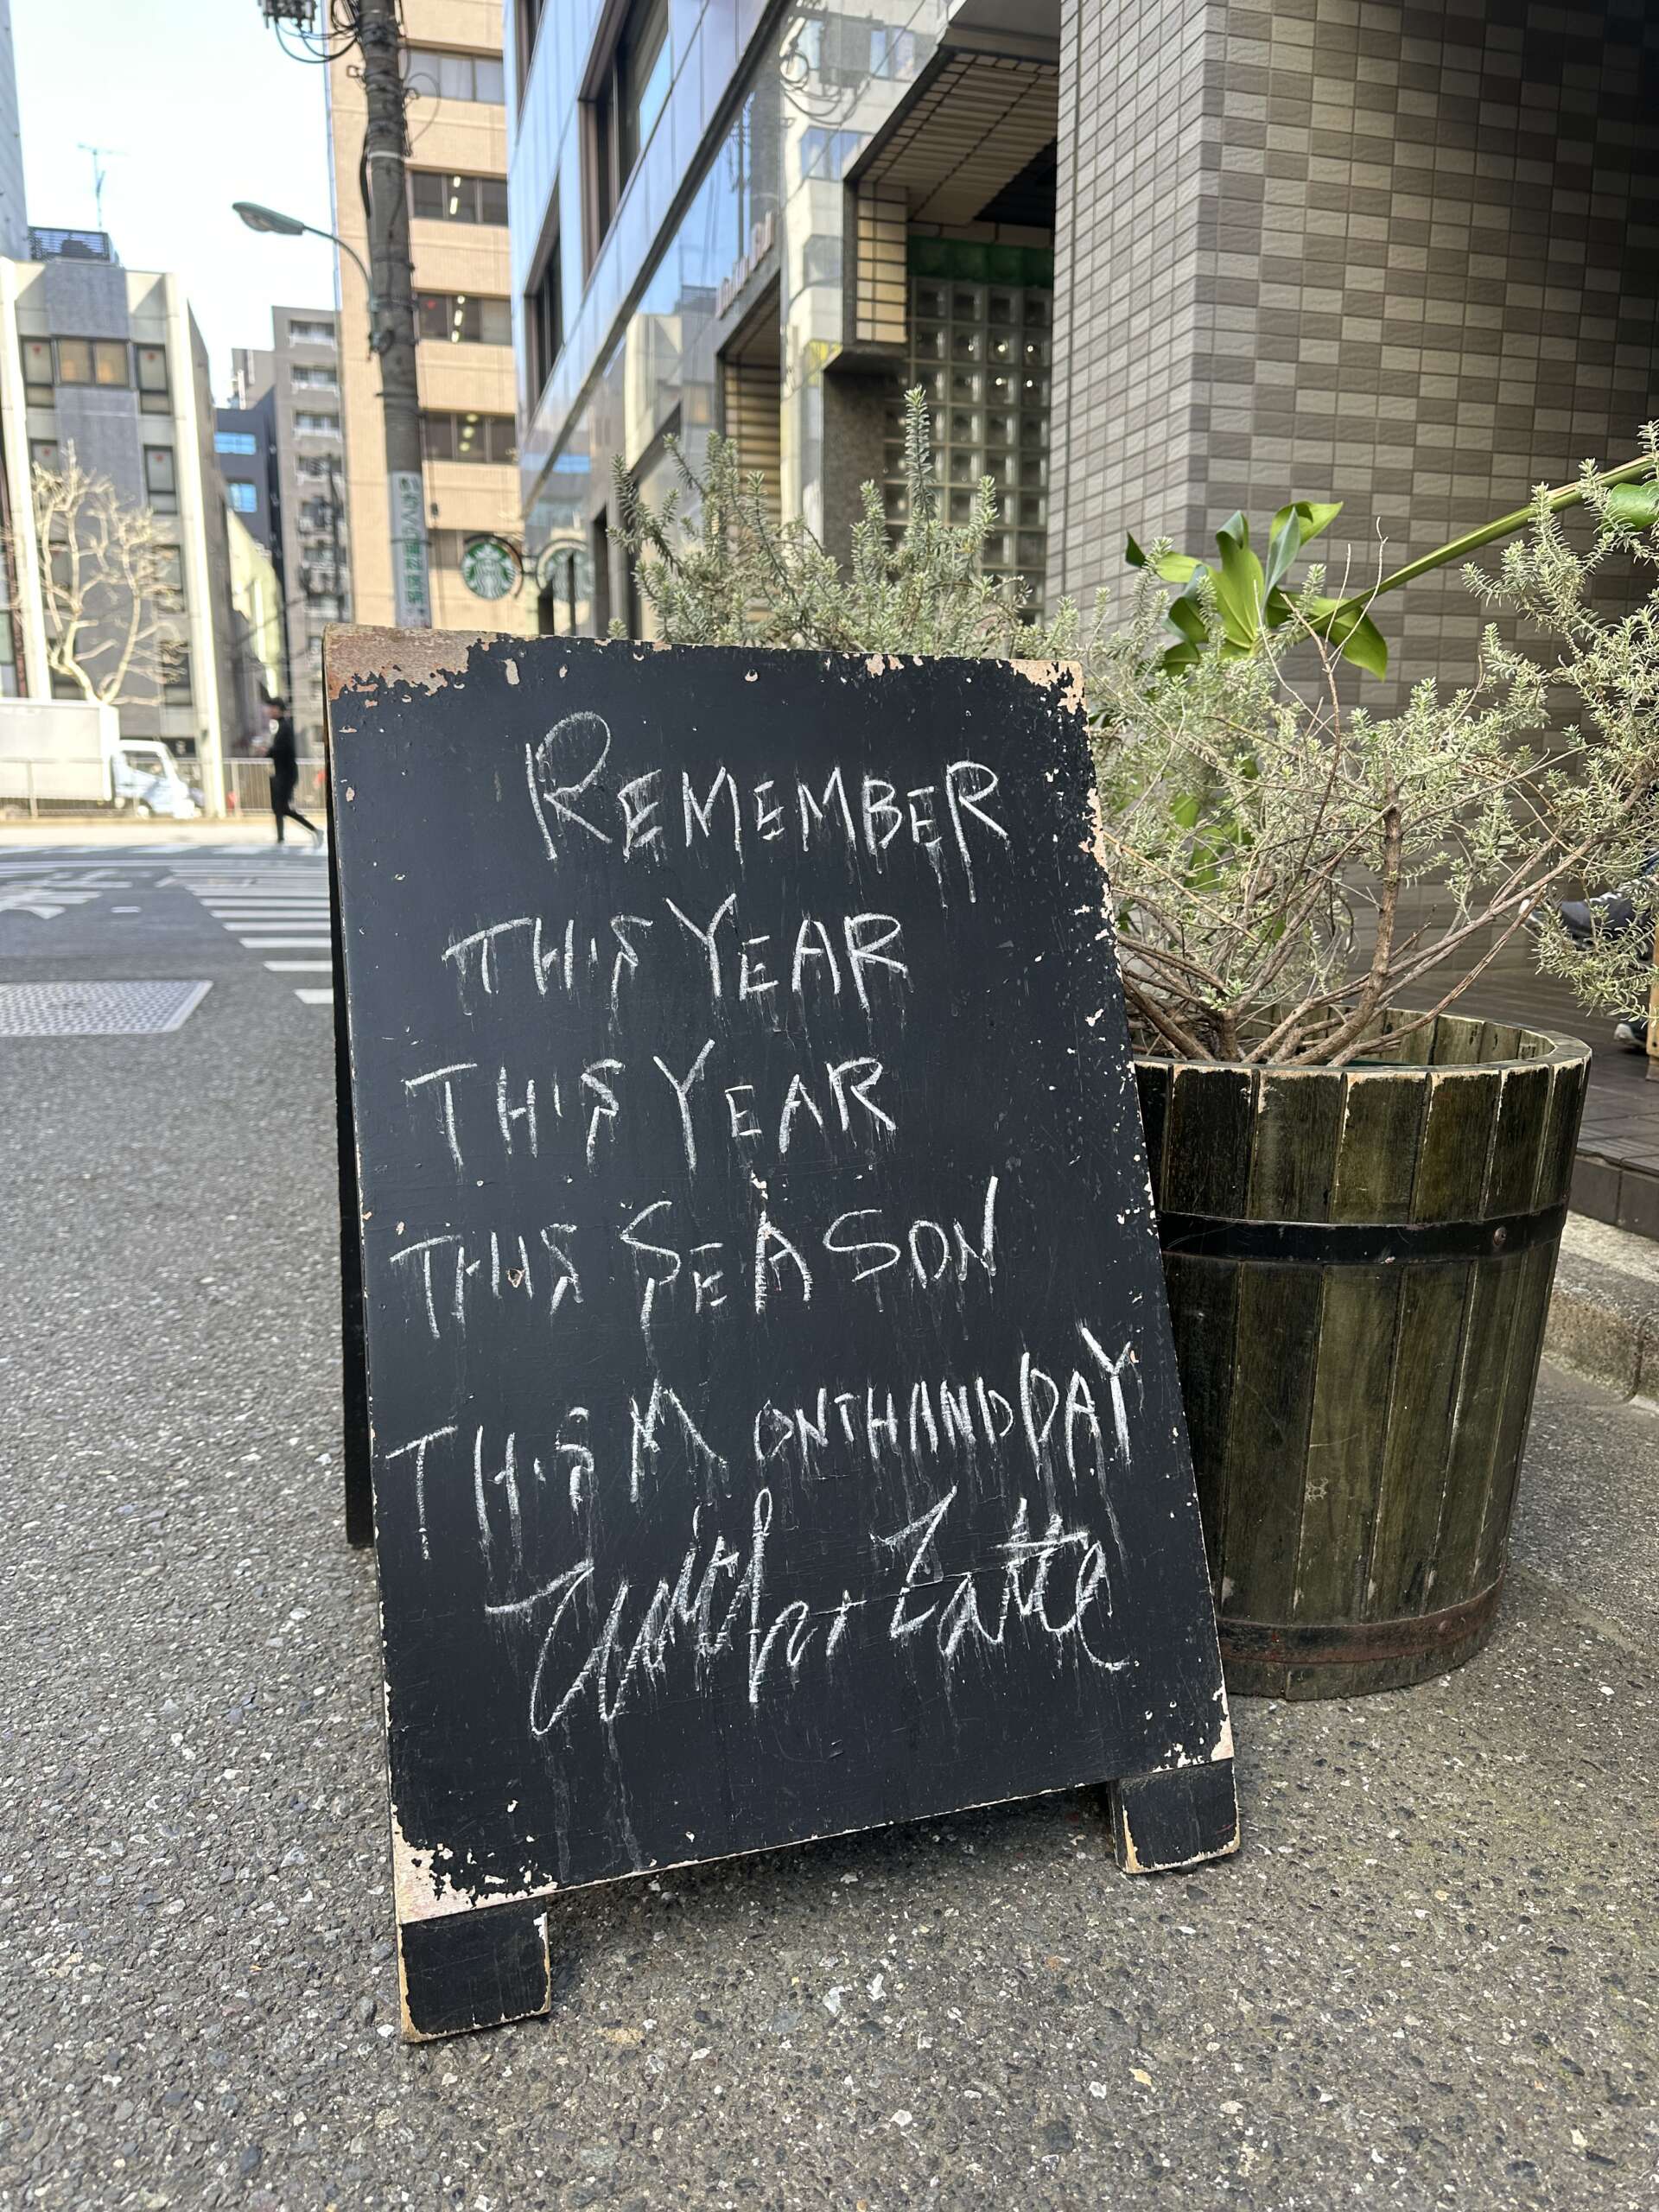 REMEMBER
THIS YEAR
THIS YEAR
THIS SEASON
THIS MONTH AND DAY
With hot Latte